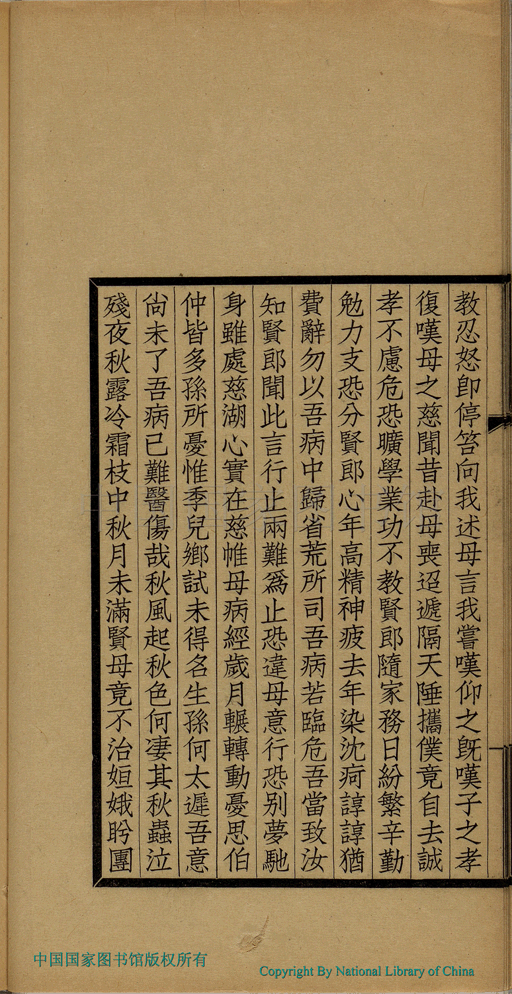 教忍怒即停笞向我述母言我嘗嘆仰之既嘆子之孝
復嘆母之慈聞昔赴母喪迢遞隔天陲攜僕竟自去誠
孝不慮危恐曠學業功不教賢郎隨家務日紛繁辛勤
勉力支恐分賢郎心年高精神疲去年染沈疴諄諄猶
費辭勿以吾病中歸省荒所司吾病若臨危吾當致汝
知賢郎聞此言行止兩難為止恐違母意行恐别夢馳
身雖處慈湖心實在慈帷母病經歲月輾轉動憂思伯
仲皆多孫所憂惟季兒鄉試未得名生孫何太遲吾意
尚未了吾病已難醫傷哉秋風起秋色何淒其秋蟲泣
殘夜秋露冷霜枝中秋月未滿賢母竟不治姮娥盻團
中国国家图书馆版权所有
Copyright By National Library of China